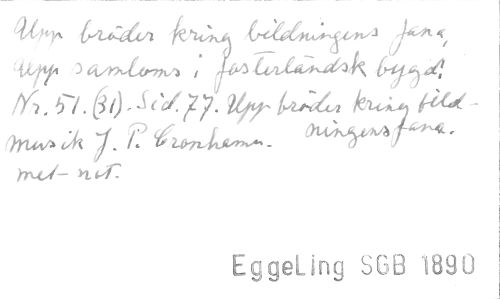 Upp bröder kring bildningens fana,
Upp samloms i fosterländsk bygd!
Nr. 51. (31). Sid. 77. Upp bröder kring bild-
musik J. P. Cronhamn. ningens fana.
met-not.
EggeLing SGB 1890